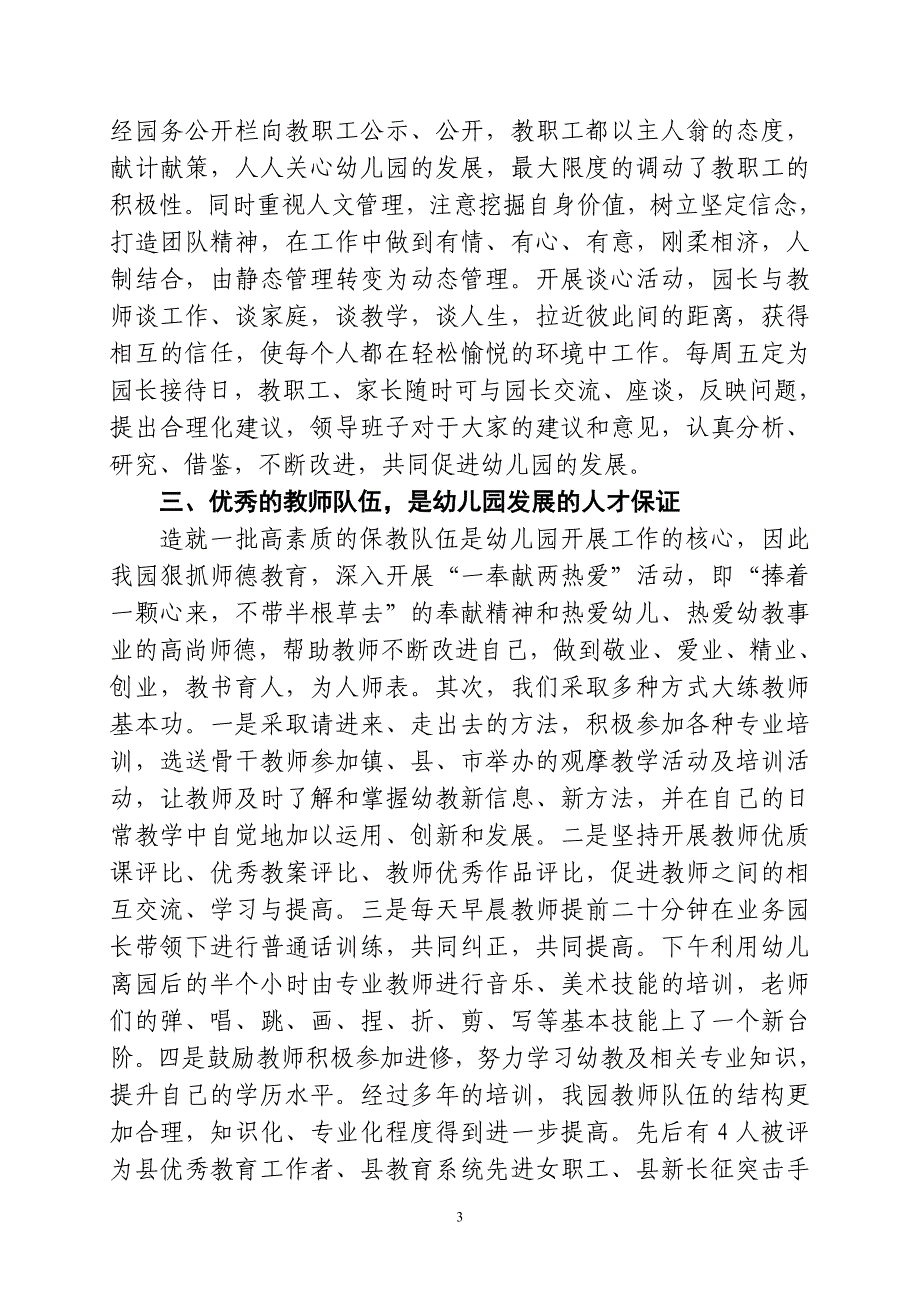 经园务公开栏向教职工公示、公开，教职工都以主人翁的态度，
献计献策，人人关心幼儿园的发展，最大限度的调动了教职工的
积极性。同时重视人文管理，注意挖掘自身价值，树立坚定信念，
打造团队精神，在工作中做到有情、有心、有意，刚柔相济，人
制结合，由静态管理转变为动态管理。开展谈心活动，园长与教
师谈工作、谈家庭，谈教学，谈人生，拉近彼此间的距离，获得
相互的信任，使每个人都在轻松愉悦的环境中工作。每周五定为
园长接待日，教职工、家长随时可与园长交流、座谈，反映问题，
提出合理化建议，领导班子对于大家的建议和意见，认真分析、
研究、借鉴，不断改进，共同促进幼儿园的发展。
三、优秀的教师队伍，是幼儿园发展的人才保证
造就一批高素质的保教队伍是幼儿园开展工作的核心，因此
我园狠抓师德教育，深入开展“一奉献两热爱”活动，即“捧着
一颗心来，不带半根草去”的奉献精神和热爱幼儿、热爱幼教事
业的高尚师德，帮助教师不断改进自己，做到敬业、爱业、精业、
创业，教书育人，为人师表。其次，我们采取多种方式大练教师
基本功。一是采取请进来、走出去的方法，积极参加各种专业培
训，选送骨干教师参加镇、县、市举办的观摩教学活动及培训活
动，让教师及时了解和掌握幼教新信息、新方法，并在自己的日
常教学中自觉地加以运用、创新和发展。二是坚持开展教师优质
课评比、优秀教案评比、教师优秀作品评比，促进教师之间的相
互交流、学习与提高。三是每天早晨教师提前二十分钟在业务园
长带领下进行普通话训练，共同纠正，共同提高。下午利用幼儿
离园后的半个小时由专业教师进行音乐、美术技能的培训，老师
们的弹、唱、跳、画、捏、折、剪、写等基本技能上了一个新台
阶。四是鼓励教师积极参加进修，努力学习幼教及相关专业知识，
提升自己的学历水平。经过多年的培训，我园教师队伍的结构更
加合理，知识化、专业化程度得到进一步提高。先后有 4 人被评
为县优秀教育工作者、县教育系统先进女职工、县新长征突击手
3